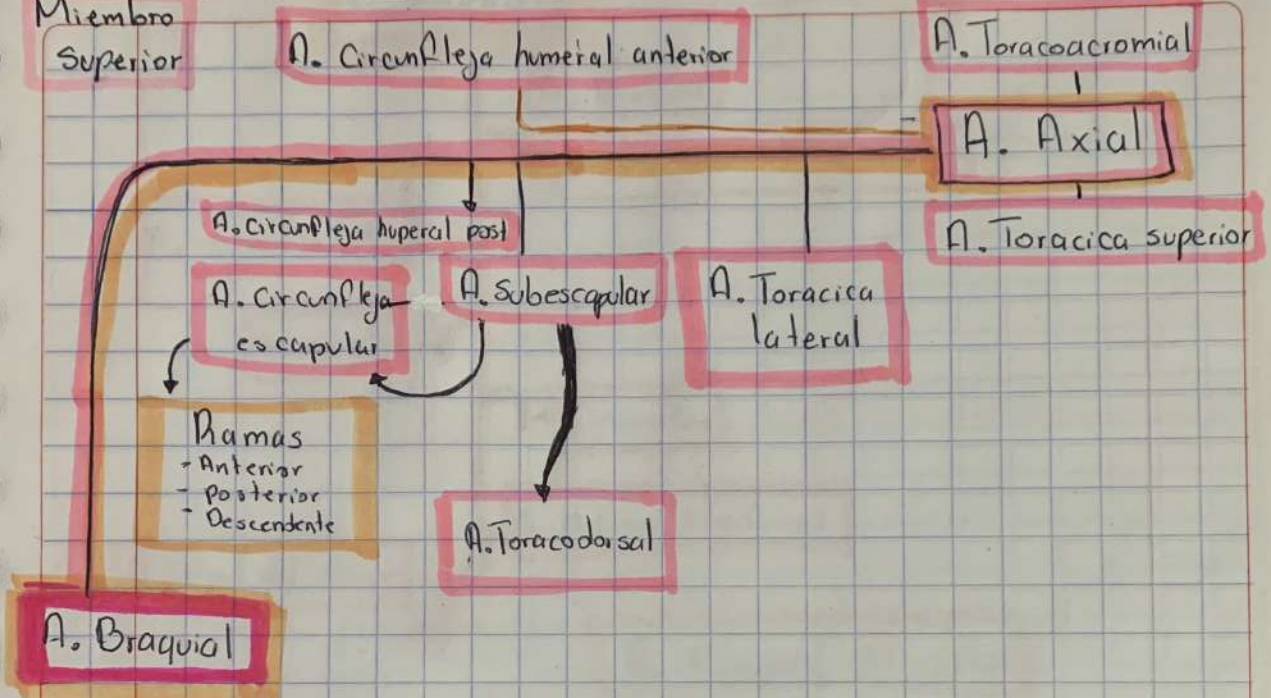 Miembro
Superior
A. Circunfleja humeral anterior
A. Toracoacromial
A. Axial
A. Toracica superior
A. circunfleja huperal post
A. Circunfleja
escapular
A. Subescapular
A. Toracica
lateral
Ramas
- Anterior
- Posterior
- Descendente
A. Toracodorsal
A. Braquial